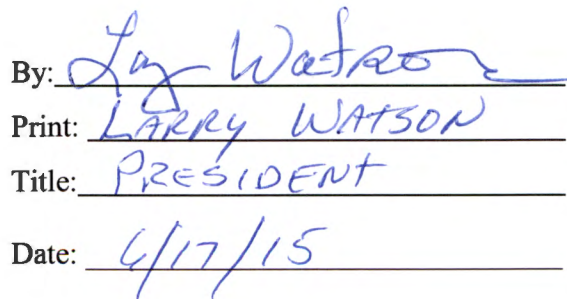 By: Larry Watson
Print: LARRY WATSON
Title: PRESIDENT
Date: 6/17/15